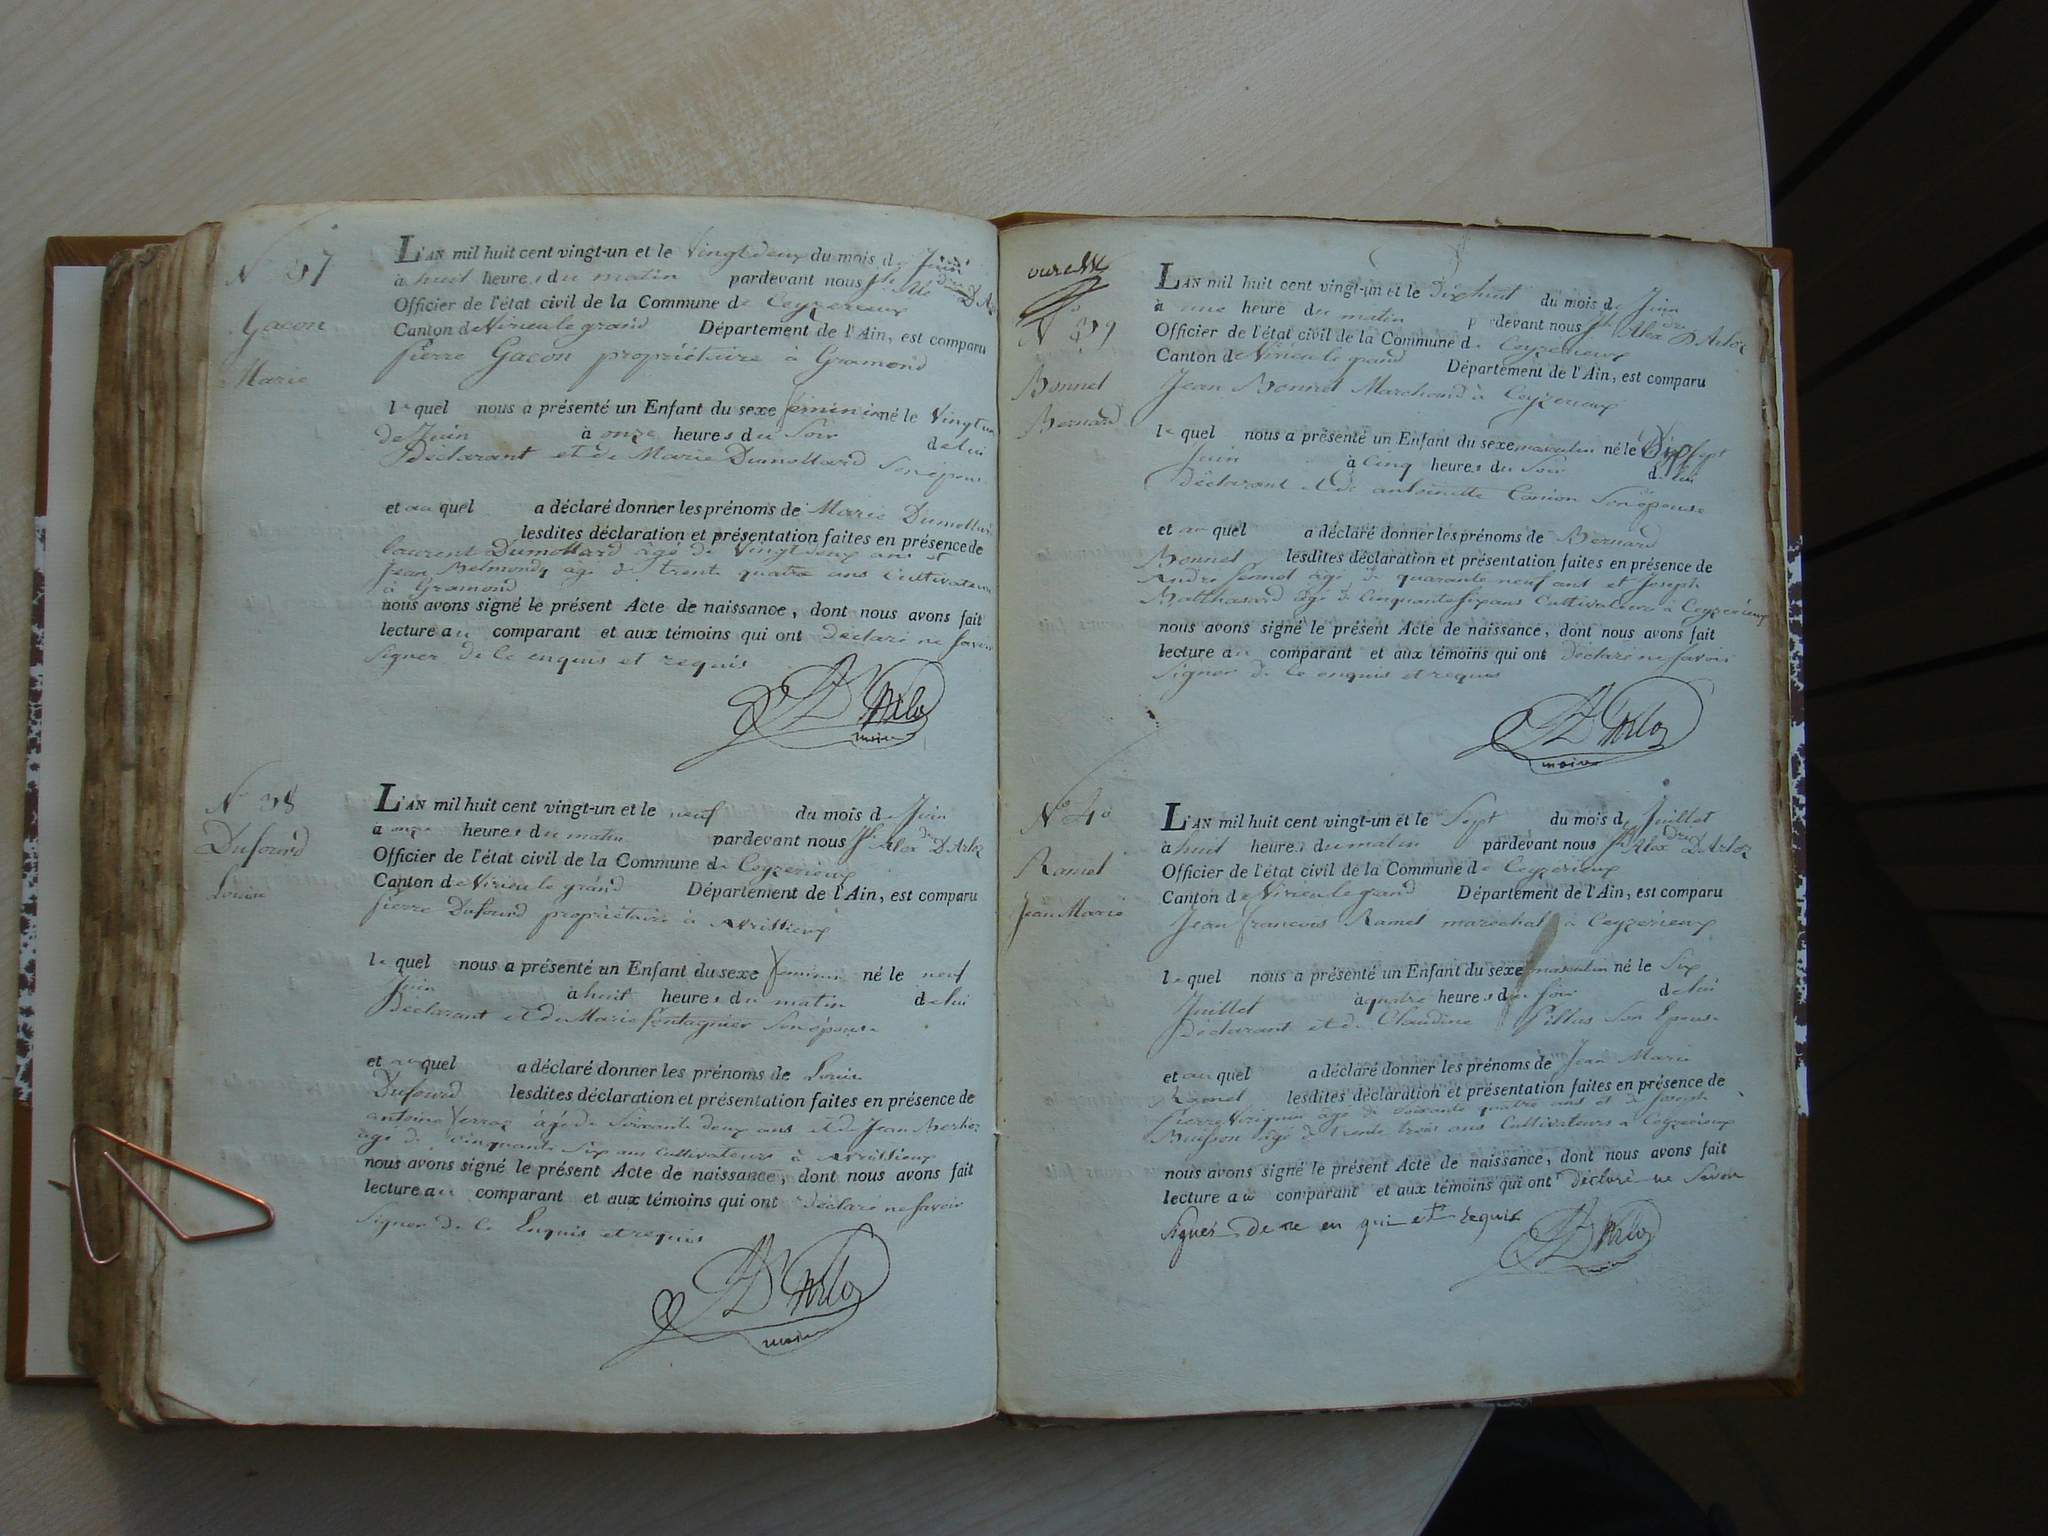 N° 37
Gacon
Marie
L'AN mil huit cent vingt-un et le Vingt deux du mois de Juin
à huit heures du matin pardevant nous
Officier de l'état civil de la Commune de Ceyzerieux
Canton de Virieu le grand Département de l'Ain, est comparu
pierre Gacon propriétaire à Gramond
lequel nous a présenté un Enfant du sexe féminin né le Vingt un
de Juin à onze heures du Soir de lui
Déclarant et de Marie Dumollard Son épouse
et au quel a déclaré donner les prénoms de Marie
lesdites déclaration et présentation faites en présence de
laurent Dumollard âgé de Vingt deux ans et
Jean Belmondy âgé de trente quatre ans Cultivateurs
à Gramond
nous avons signé le présent Acte de naissance, dont nous avons fait
lecture au comparant et aux témoins qui ont déclaré ne savoir
signer de ce enquis et requis
D'Arloz
maire
N° 38
Dufourd
Louise
L'AN mil huit cent vingt-un et le neuf du mois de Juin
à onze heures du matin pardevant nous Jh Alex dre D'Arloz
Officier de l'état civil de la Commune de Ceyzerieux
Canton de Virieu le grand Département de l'Ain, est comparu
pierre Dufourd propriétaire à Avrissieux
lequel nous a présenté un Enfant du sexe feminin né le neuf
Juin à huit heures du matin de lui
Déclarant et de Marie Son épouse
et au quel a déclaré donner les prénoms de Louise
Dufourd lesdites déclaration et présentation faites en présence de
antoine âgé de Soixante deux ans et de Jean
âgé de cinquante Six ans Cultivateurs à Avrissieux
nous avons signé le présent Acte de naissance, dont nous avons fait
lecture au comparant et aux témoins qui ont déclaré ne savoir
Signer de ce Enquis et requis
D'Arloz
maire
N° 39
Bonnet
Bernard
L'AN mil huit cent vingt-un et le Dix huit du mois de Juin
à une heure du matin pardevant nous Jh Alex dre D'Arloz
Officier de l'état civil de la Commune de Ceyzerieux
Canton de Virieu le grand Département de l'Ain, est comparu
Jean Bonnet Marchand à Ceyzerieux
lequel nous a présenté un Enfant du sexe masculin né le Dix Sept
Juin à Cinq heures du Soir de lui
Déclarant et de antoinette Son épouse
et au quel a déclaré donner les prénoms de Bernard
Bonnet lesdites déclaration et présentation faites en présence de
André âgé de quarante neuf ans et Joseph
Balthasard âgé de Cinquante six ans Cultivateurs à Ceyzerieux
nous avons signé le présent Acte de naissance, dont nous avons fait
lecture au comparant et aux témoins qui ont déclaré ne savoir
Signer de ce enquis et requis
D'Arloz
maire
N° 40
Ramel
Jean Marie
L'AN mil huit cent vingt-un et le Sept du mois de Juillet
à huit heures du matin pardevant nous Jh Alex dre D'Arloz
Officier de l'état civil de la Commune de Ceyzerieux
Canton de Virieu le grand Département de l'Ain, est comparu
Jean francois Ramel maréchal à Ceyzerieux
lequel nous a présenté un Enfant du sexe masculin né le Six
Juillet à quatre heures du soir de lui
Déclarant et de Claudine Son Epouse
et au quel a déclaré donner les prénoms de Jean Marie
Ramel lesdites déclaration et présentation faites en présence de
pierre âgé de soixante quatre ans et de Joseph
Buisson âgé de trente trois ans Cultivateurs à Ceyzerieux
nous avons signé le présent Acte de naissance, dont nous avons fait
lecture au comparant et aux témoins qui ont déclaré ne Savoir
signer de ce en qui et requis
D'Arloz
maire